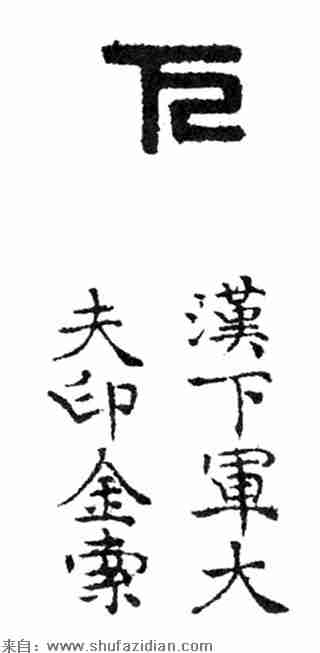 下
漢下軍大
夫印金索
来自：www.shufazidian.com